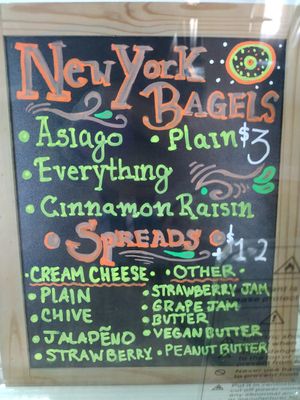 New York
Bagels
• Asiago • Plain $3
• Everything
• Cinnamon Raisin
• Spreads • + $1-2
• Cream Cheese • Other •
• Plain
• Chive
• Jalapẽno
• Strawberry
• Strawberry Jam
• Grape Jam
• Butter
• Vegan Butter
• Peanut Butter